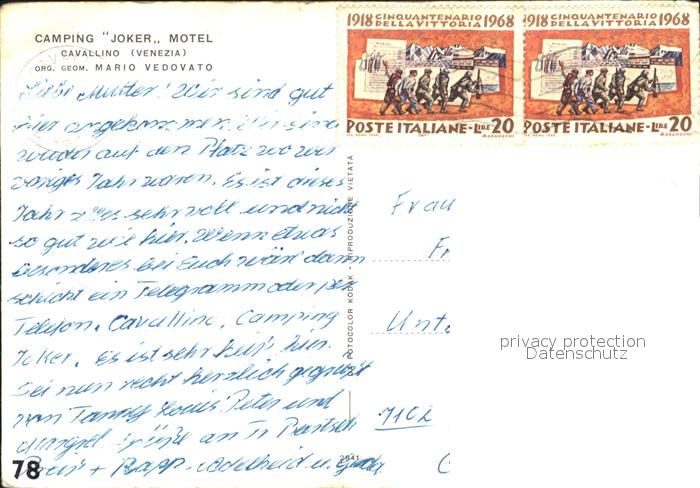 CAMPING "JOKER„ MOTEL
CAVALLINO (VENEZIA)
ORG. GEOM. MARIO VEDOVATO
Liebe Mutter! Wir sind gut
hier angekommen. Wir sind
wieder auf den Platz wo wir
voriges Jahr waren. Es ist dieses
Jahr sehr voll und nicht
so gut wie hier. Wenn etwas
besonderes bei Euch wär dann
schickt ein Telegramm oder per
Telefon. Cavallino, Camping
Joker. Es ist sehr hier.
Sei nun recht herzlich gegrüßt
von Louis Peter und
Grüße an Fr.
+ Rapp. Adelheid u.
78
1918 CINQUANTENARIO DELLA VITTORIA 1968
POSTE ITALIANE-LIRE 20
MARANGONI
1918 CINQUANTENARIO DELLA VITTORIA 1968
POSTE ITALIANE-LIRE 20
MARANGONI
FOTOCOLOR KODAK • RIPRODUZIONE VIETATA
2941
Frau
Fr
Unt
privacy protection
Datenschutz